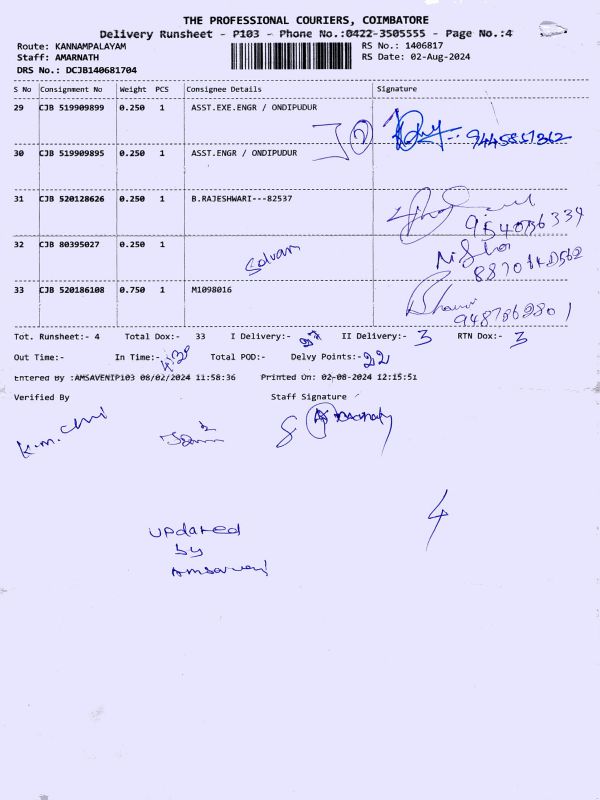 THE PROFESSIONAL COURIERS, COIMBATORE
Delivery Runsheet - P103 - Phone No.:0422-3505555 - Page No.:4
Route: KANNAMPALAYAM
RS No.: 1406817
Staff: AMARNATH
RS Date: 02-Aug-2024
DRS No.: DCJB140681704
S No Consignment No Weight PCS Consignee Details Signature
29 CJB 519909899 0.250 1 ASST.EXE.ENGR / ONDIPUDUR
30 CJB 519909895 0.250 1 ASST.ENGR / ONDIPUDUR
31 CJB 520128626 0.250 1 B.RAJESHWARI---82537
32 CJB 80395027 0.250 1 Selvam
33 CJB 520186108 0.750 1 M1098016
Tot. Runsheet:- 4 Total Dox:- 33 I Delivery:- II Delivery:- 3 RTN Dox:- 3
Out Time:- In Time:- Total POD:- Delvy Points:- 22
Entered By :AMSAVENIP103 08/02/2024 11:58:36 Printed On: 02-08-2024 12:15:51
Verified By Staff Signature
4
updated
by
Amsaveni